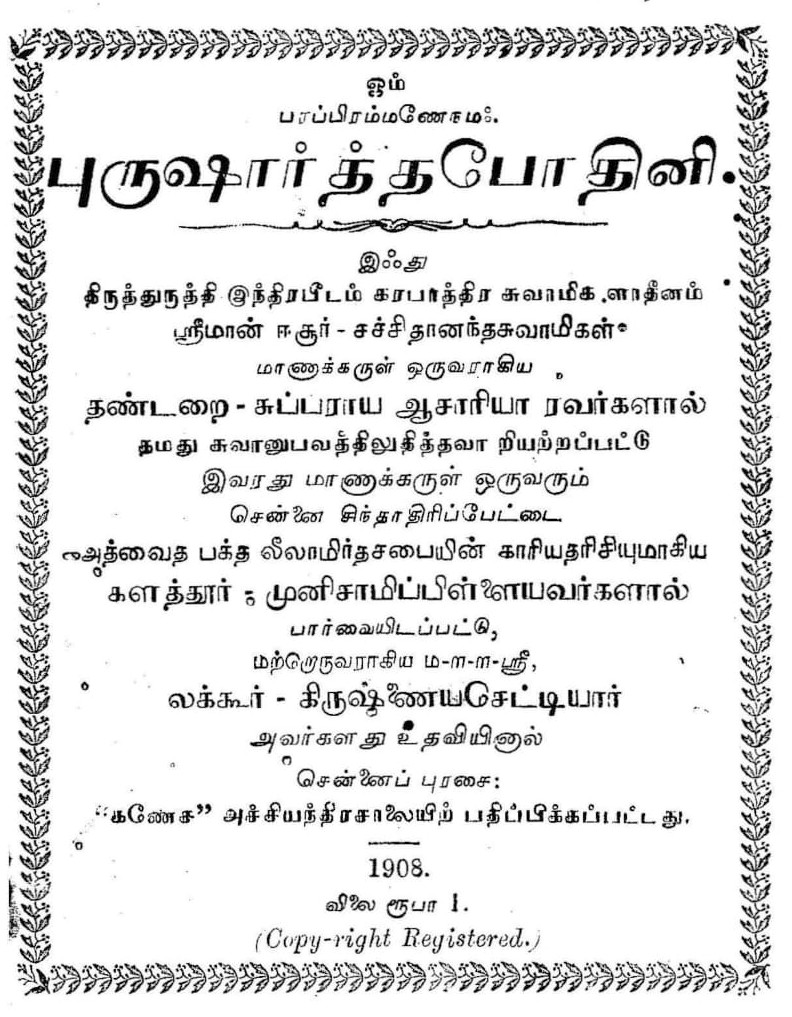 ஓம்
பரப்பிரம்மணேநம:.
புருஷார்த்தபோதினி.
இஃது
திருத்துருத்தி இந்திரபீடம் கரபாத்திர சுவாமிக ளாதீனம்
ஸ்ரீமான் ஈசூர் - சச்சிதானந்தசுவாமிகள்
மாணாக்கருள் ஒருவராகிய
தண்டறை - சுப்பராய ஆசாரியா ரவர்களால்
தமது சுவானுபவத்திலுதித்தவா றியற்றப்பட்டு
இவரது மாணாக்கருள் ஒருவரும்
சென்னை சிந்தாதிரிப்பேட்டை
அத்வைத பக்த லீலாமிர்தசபையின் காரியதரிசியுமாகிய
களத்தூர் - முனிசாமிப்பிள்ளையவர்களால்
பார்வையிடப்பட்டு,
மற்றொருவராகிய ம-ா-ா-ஸ்ரீ,
லக்கூர் - கிருஷ்ணையசெட்டியார்
அவர்களது உதவியினால்
சென்னைப் புரசை:
“கணேச” அச்சியந்திரசாலையிற் பதிப்பிக்கப்பட்டது.
1908.
விலை ரூபா 1.
(Copy-right Registered.)